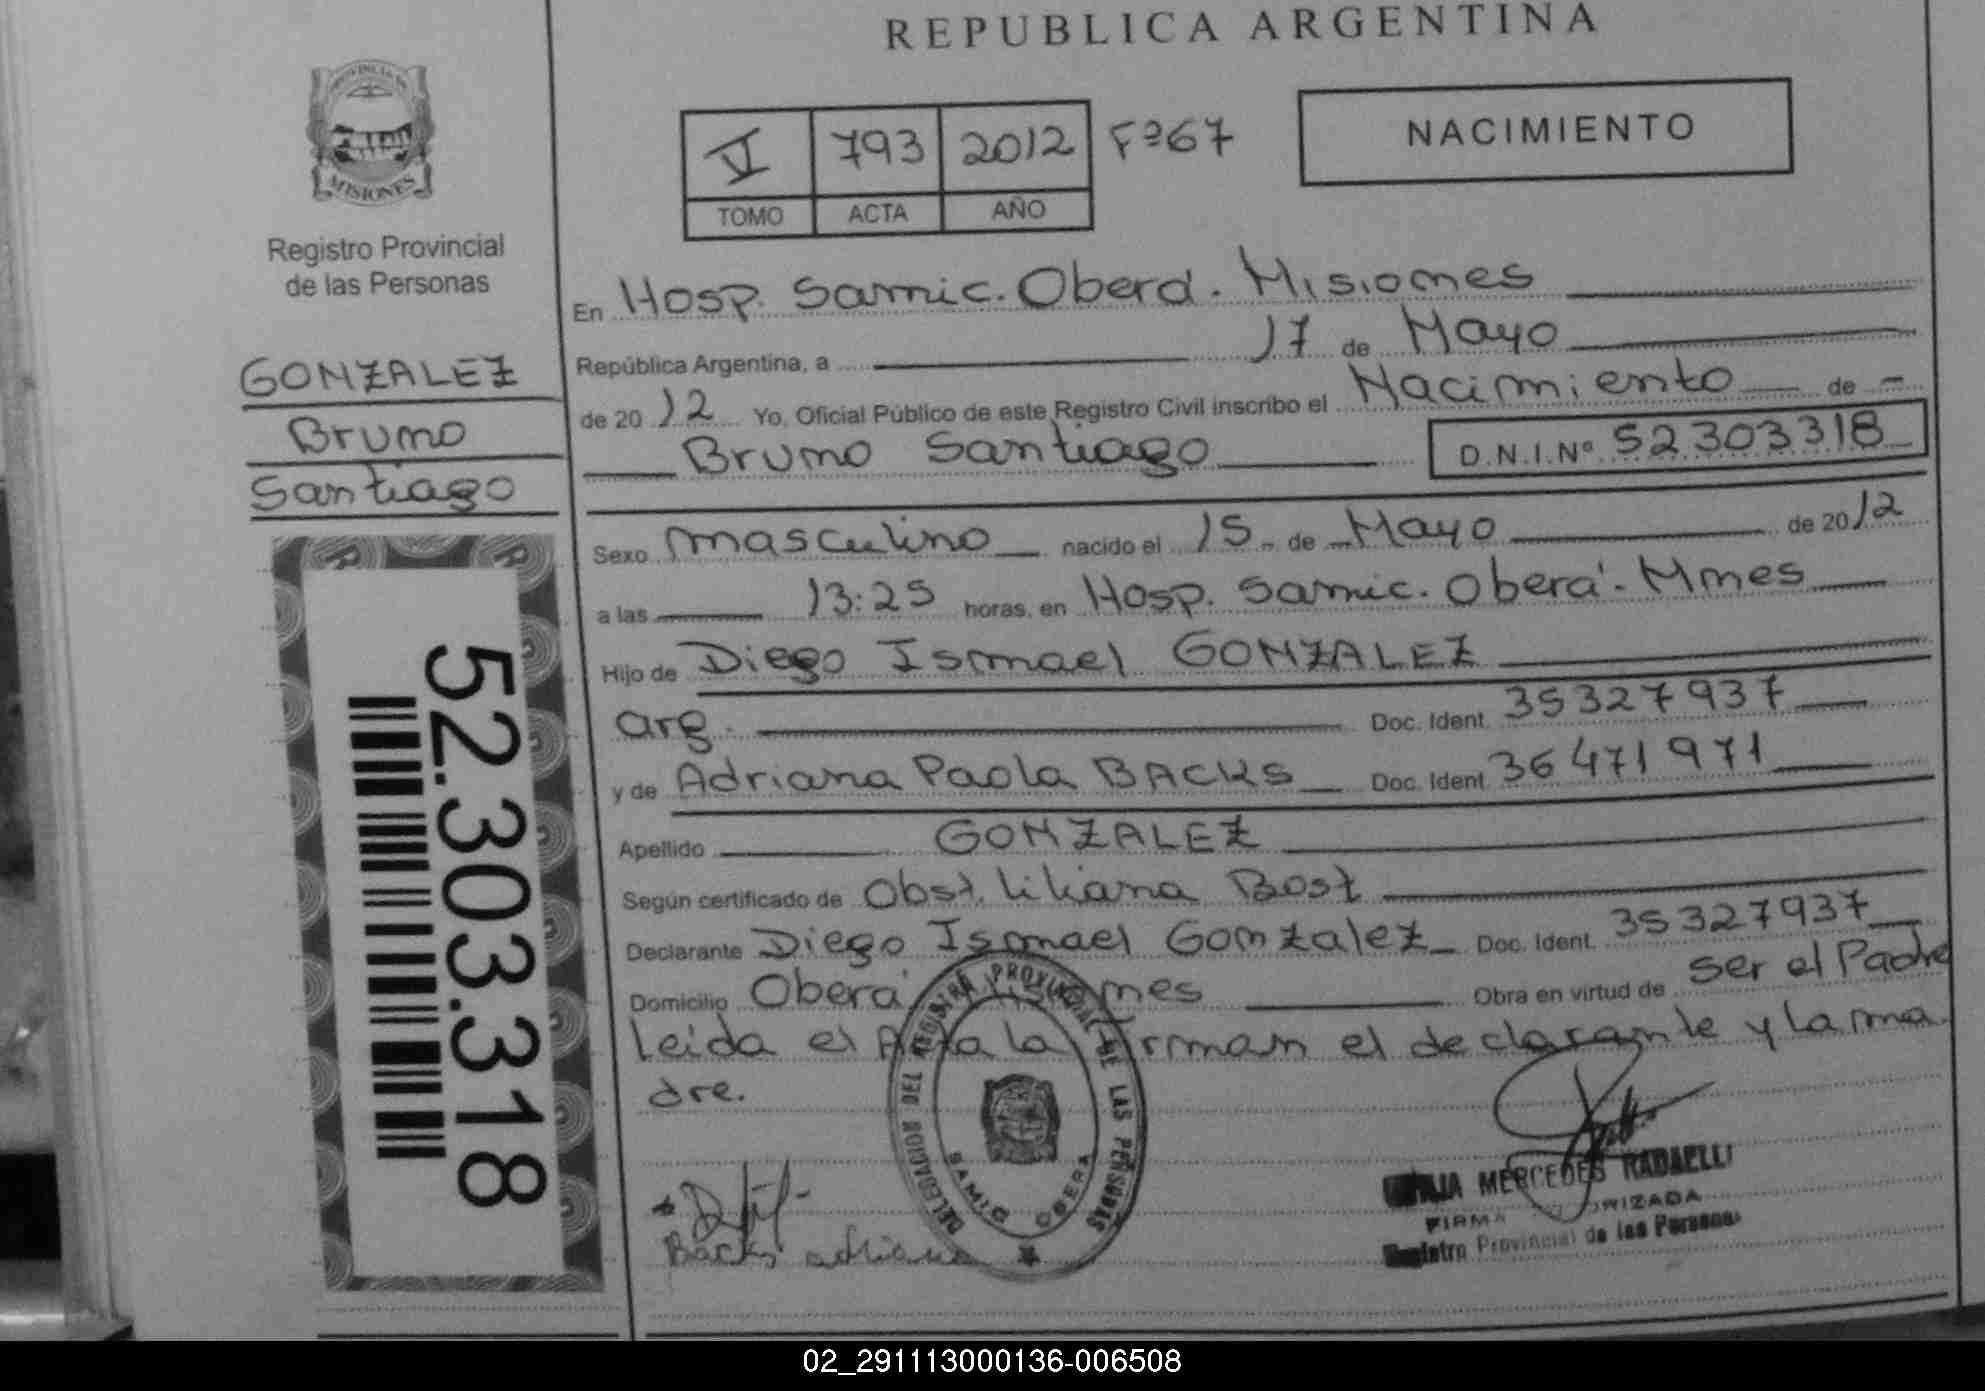 REPUBLICA ARGENTINA
PROVINCIA DE
MISIONES
Registro Provincial
de las Personas
GONZALEZ
Bruno
Santiago
52.303.318
VI 793 2012 Fº67
TOMO ACTA AÑO
NACIMIENTO
En Hosp. Samic. Oberá. Misiones
República Argentina, a 17 de Mayo
de 2012 Yo, Oficial Público de este Registro Civil inscribo el Nacimiento de
Bruno Santiago D.N.I.Nº 52303318
Sexo masculino nacido el 15 de Mayo de 2012
a las 13:25 horas, en Hosp. Samic. Oberá. Mnes
Hijo de Diego Ismael GONZALEZ
arg. Doc. Ident. 35327937
y de Adriana Paola BACKS Doc. Ident. 36471971
Apellido GONZALEZ
Según certificado de Obst. Liliana Bost
Declarante Diego Ismael Gonzalez Doc. Ident. 35327937
Domicilio Oberá Misiones Obra en virtud de ser el Padre
Leida el Acta la firman el declarante y la ma
dre.
DELEGACION DEL REGISTRO PROVINCIAL DE LAS PERSONAS
SAMIC OBERA
Backs adriana
MERCEDES RADAELLI
FIRMA AUTORIZADA
Registro Provincial de las Personas
02_291113000136-006508